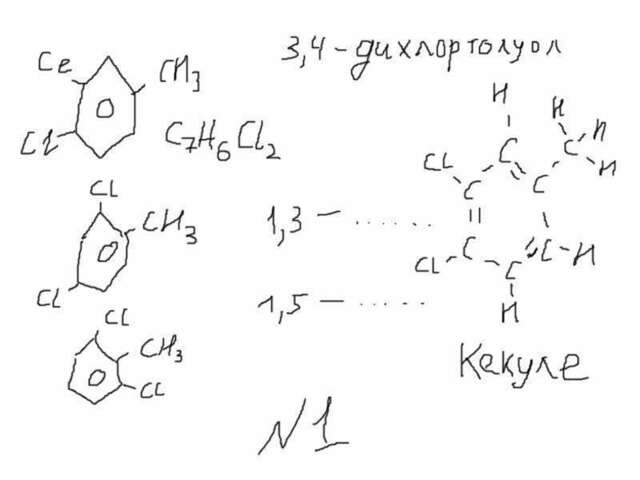 3,4-дихлортолуол
Cl CH3
Cl
C7H6Cl2
Cl
CH3
Cl
1,3 — ......
Cl
CH3
Cl
1,5 — .....
H
H
H
C
C
H
Cl
C
C
Cl
C
C
H
C
H
Кекуле
N1